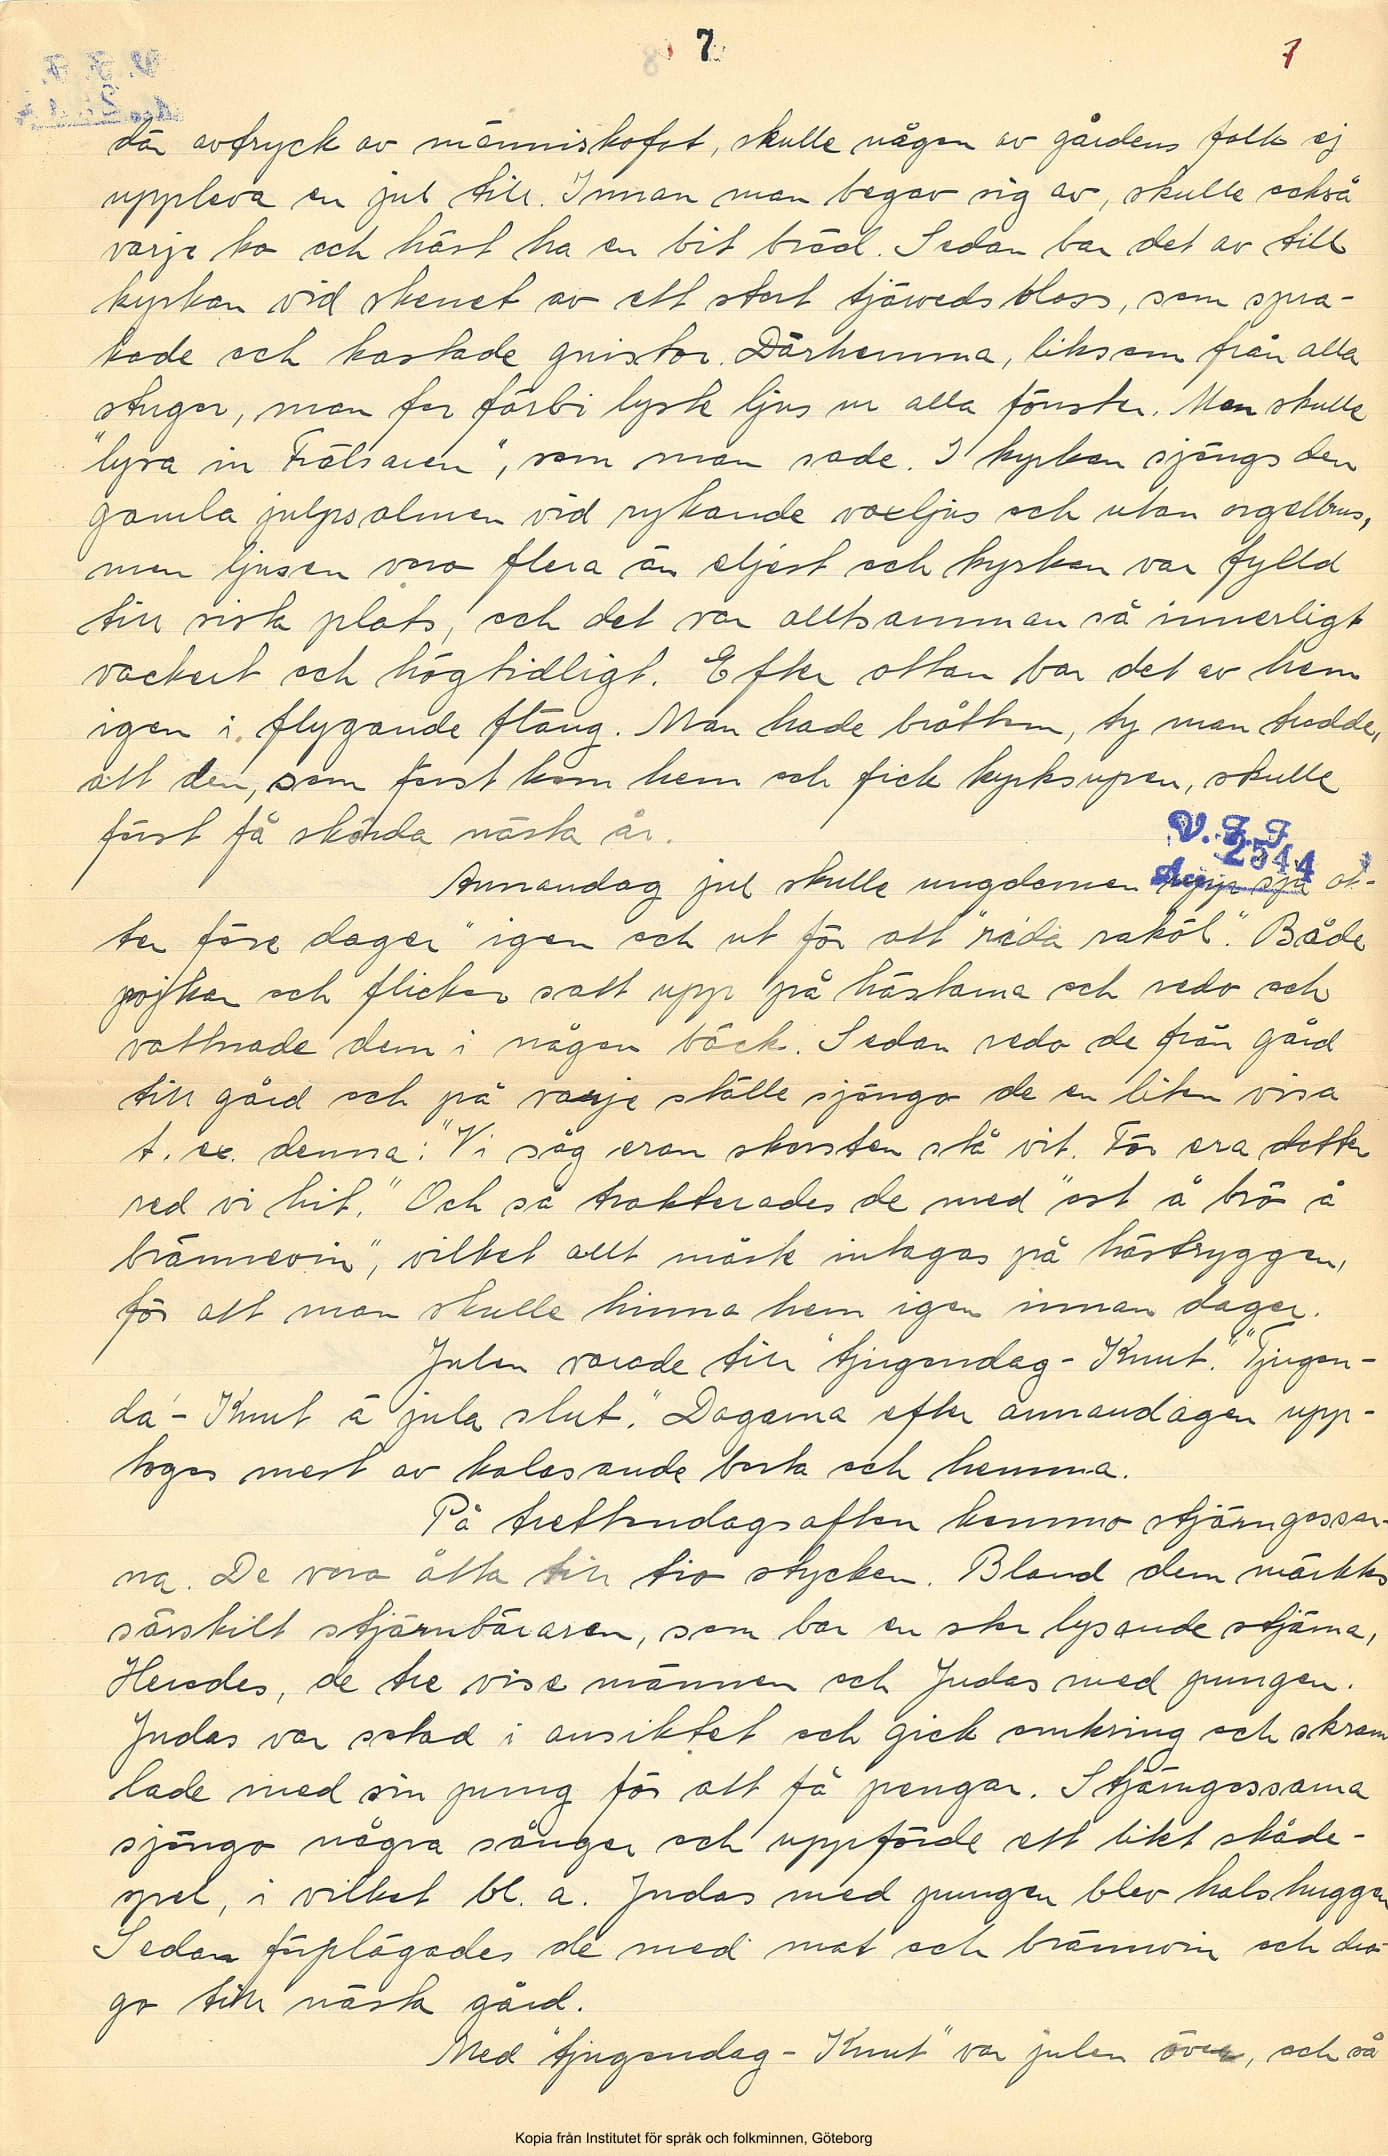 7
7
där avtryck av människofot, skulle någon av gårdens folk ej
uppleva en jul till. Innan man begav sig av, skulle också
varje ko och häst ha en bit bröd. Sedan bar det av till
kyrkan vid skenet av ett stort tjärvedsbloss, som spra-
kade och kastade gnistor. Därhemma, liksom från alla
stugor, man for förbi lyste ljus ur alla fönster. Man skulle
"lysa in Frälsaren", som man sade. I kyrkan sjöngs den
gamla julpsalmen vid rykande vaxljus och utan orgelbrus,
men ljusen voro flera än eljest och kyrkan var fylld
till sista plats, och det var alltsamman så innerligt
vackert och högtidligt. Efter ottan bar det av hem
igen i flygande fläng. Man hade bråttom, ty man trodde,
att den, som först kom hem och fick kyrksupen, skulle
först få skörda nästa år.
V. F. F.
2544
Annandag jul skulle ungdomen upp "sju ot-
ter före dager" igen och ut för att "rida raköl". Både
pojkar och flickor satt upp på hästarna och redo och
vattnade dem i någon bäck. Sedan redo de från gård
till gård och på varje ställe sjöngo de en liten visa
t. ex. denna: "Vi såg eran skorsten stå vit. För era dotter
red vi hit." Och så trakterades de med "ost å brö å
brännevin", vilket allt måste intagas på hästryggen,
för att man skulle hinna hem igen innan dager.
Julen varade till "tjugondag-Knut". "Tjugon-
da'-Knut ä jula slut." Dagarna efter annandagen upp-
togos mest av kalasande borta och hemma.
På trettondagsafton kommo stjärngossar-
na. De voro åtta till tio stycken. Bland dem märktes
särskilt stjärnbäraren, som bar en stor lysande stjärna,
Herodes, de tre vise männen och Judas med pungen.
Judas var sotad i ansiktet och gick omkring och skram
lade med sin pung för att få pengar. Stjärngossarna
sjöngo några sånger och uppförde ett litet skåde-
spel, i vilket bl. a. Judas med pungen blev halshuggen
Sedan förplägades de med mat och brännvin och dro-
go till nästa gård.
Med "tjugondag-Knut" var julen över, och så
Kopia från Institutet för språk och folkminnen, Göteborg